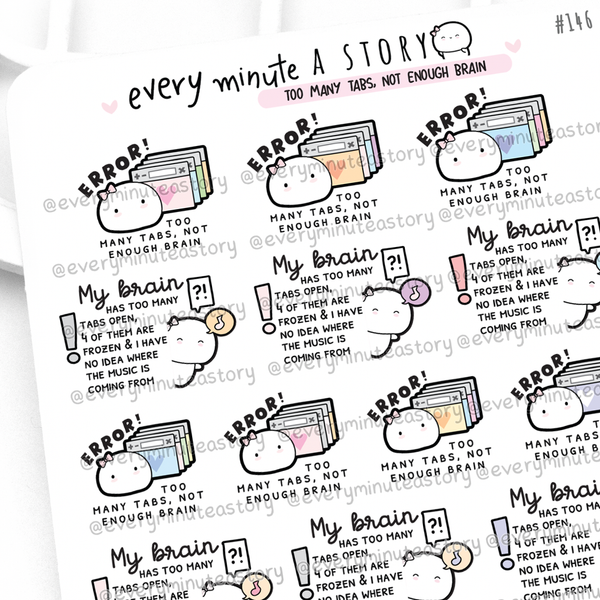 #146
every minute A STORY
TOO MANY TABS, NOT ENOUGH BRAIN
ERROR!
TOO
MANY TABS, NOT
ENOUGH BRAIN
ERROR!
TOO
MANY TABS, NOT
ENOUGH BRAIN
ERROR!
TOO
MANY TABS, NOT
ENOUGH BRAIN
@everyminuteastory
My brain
HAS TOO MANY
TABS OPEN,
4 OF THEM ARE
FROZEN & I HAVE
NO IDEA WHERE
THE MUSIC IS
COMING FROM
?!
My brain
HAS TOO MANY
TABS OPEN,
4 OF THEM ARE
FROZEN & I HAVE
NO IDEA WHERE
THE MUSIC IS
COMING FROM
?!
My brain
HAS TOO MANY
TABS OPEN,
4 OF THEM ARE
FROZEN & I HAVE
NO IDEA WHERE
THE MUSIC IS
COMING FROM
?!
@everyminuteastory
ERROR!
TOO
MANY TABS, NOT
ENOUGH BRAIN
ERROR!
TOO
MANY TABS, NOT
ENOUGH BRAIN
ERROR!
TOO
MANY TABS, NOT
ENOUGH BRAIN
ERROR!
TOO
MANY TABS,
ENOUGH B
@everyminuteastory
My brain
HAS TOO MANY
TABS OPEN,
?!
My brain
HAS TOO MANY
TABS OPEN,
4 OF THEM ARE
FROZEN & I HAVE
NO IDEA WHERE
?!
My brain
HAS TOO MANY
TABS OPEN,
4 OF THEM ARE
FROZEN & I HAVE
NO IDEA WHERE
THE MUSIC IS
COMING FROM